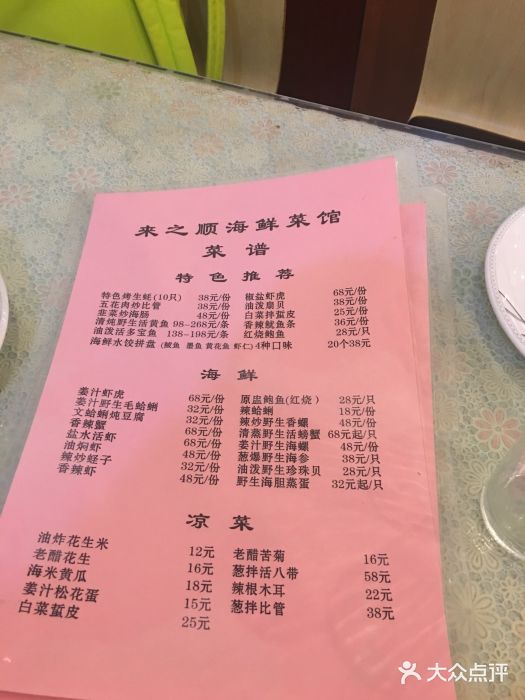 来之顺海鲜菜馆
菜谱
特色推荐
特色烤生蚝(10只) 38元/份 椒盐虾虎 68元/份
五花肉炒比管 38元/份 油泼扇贝 38元/份
韭菜炒海肠 48元/份 白菜拌蜇皮 25元/份
清炖野生活黄鱼 98-268元/条 香辣鱿鱼条 36元/份
油泼活多宝鱼 138-198元/条 红烧鲍鱼 28元/只
海鲜水饺拼盘 (鲅鱼 墨鱼 黄花鱼 虾仁)4种口味 20个38元
海鲜
姜汁虾虎 68元/份 原盅鲍鱼(红烧) 28元/只
姜汁野生毛蛤蜊 32元/份 辣蛤蜊 18元/份
文蛤蜊炖豆腐 32元/份 辣炒野生香螺 48元/份
香辣蟹 68元/份 清蒸野生活螃蟹 68元起/只
盐水活虾 48元/份 姜汁野生海螺 48元/份
油焖虾 68元/份 葱爆野生海参 38元/只
辣炒蛏子 32元/份 油泼野生珍珠贝 28元/只
香辣虾 48元/份 野生海胆蒸蛋 32元起/只
凉菜
油炸花生米 12元 老醋苦菊 16元
老醋花生 16元 葱拌活八带 58元
海米黄瓜 18元 辣根木耳 22元
姜汁松花蛋 15元 葱拌比管 38元
白菜蜇皮 25元
大众点评